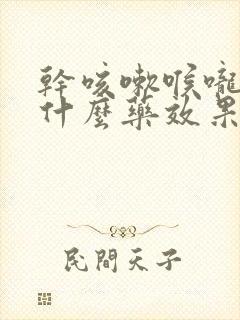 幹咳嗽喉嚨
什麼藥效果
民間天子